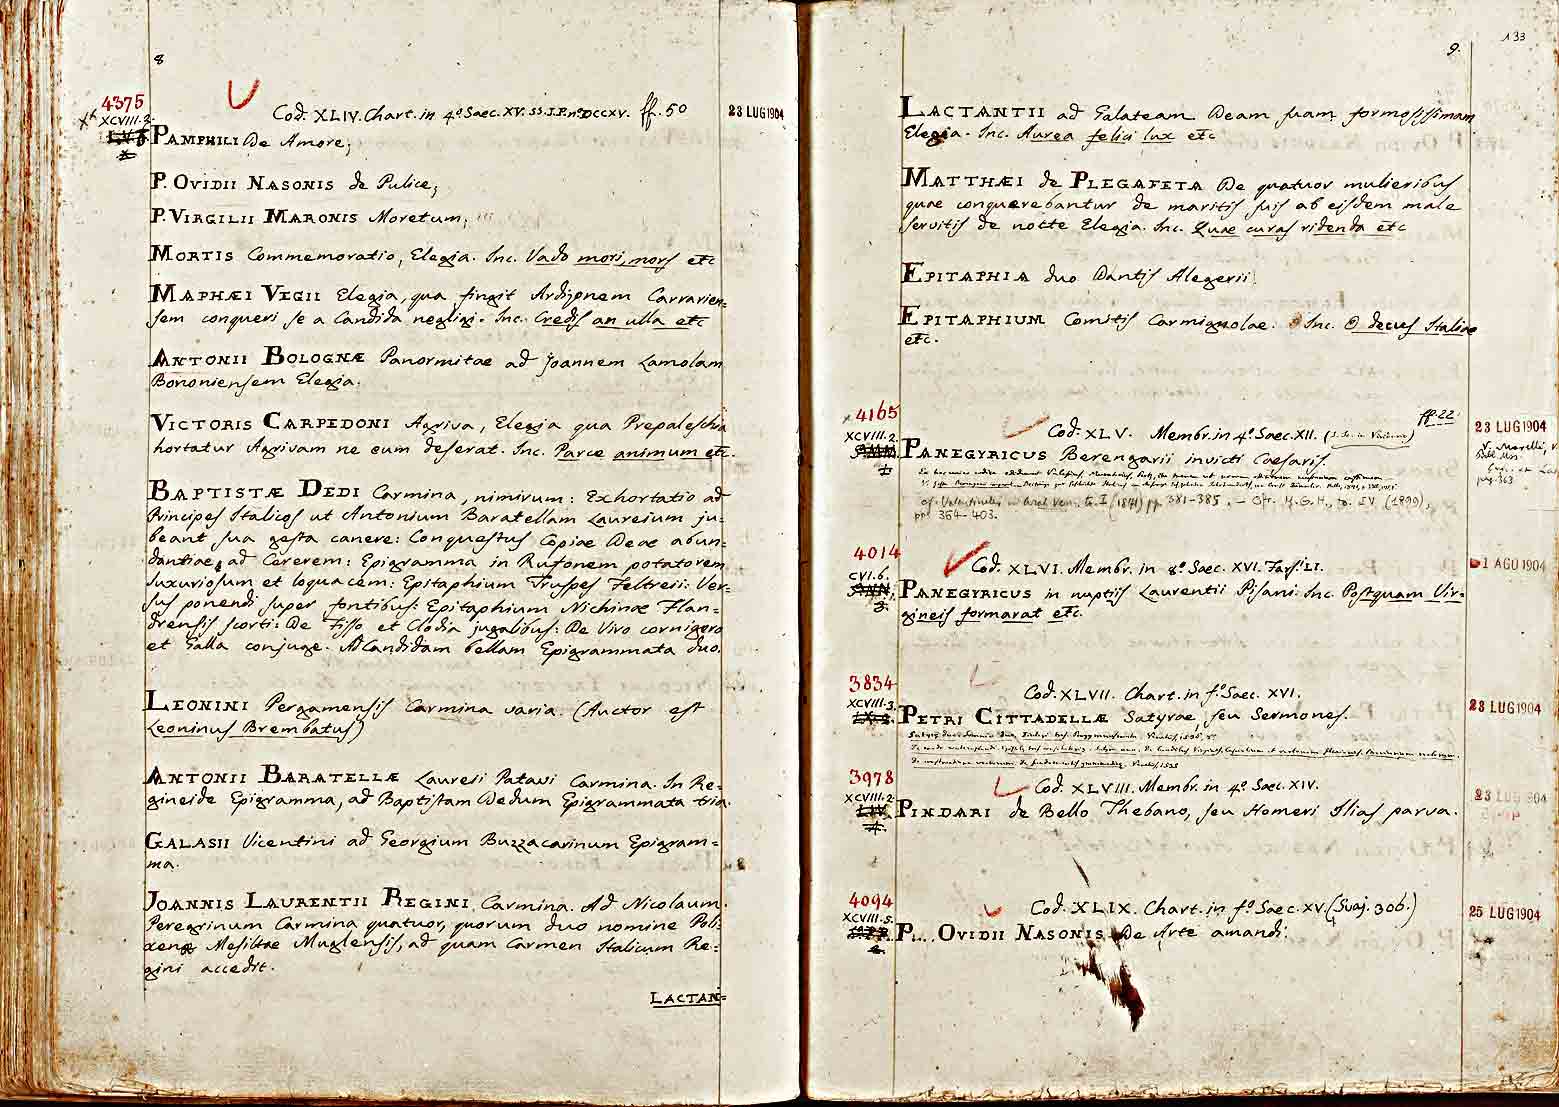 8
4375
XCVIII.2.
Cod. XLIV. Chart. in 4º. Saec. XV. SS. J. P. nº DCCXV. ff. 50
23 LUG 1904
PAMPHILI De Amore;
P. OVIDII NASONIS de Pulice;
P. VIRGILII MARONIS Moretum;
MORTIS Commemoratio, Elegia. Inc. Vado mori, mors etc
MAPHÆI VEGII Elegia, qua fingit Ardizonem Carrarien=
sem conqueri se a Candida negligi. Inc. Credis an ulla etc
ANTONII BOLOGNÆ Panormitae ad Joannem Lamolam
Bononiensem Elegia.
VICTORIS CARPEDONI Agriva, Elegia qua Prepaleschia
hortatur Agrivam ne eum deserat. Inc. Parce animum etc.
BAPTISTÆ DEDI Carmina, nimirum: Exhortatio ad
Principes Italicos ut Antonium Baratellam Laureium ju=
beant sua gesta canere: Conquestus Copiae Deae abun=
dantiae, ad Cererem: Epigramma in Rufonem potatorem
luxuriosum et loquacem: Epitaphium Truspes Feltreii: Ver=
sus ponendi super fontibus: Epitaphium Nichinae Flan=
drensis scorti: De Fisso et Clodia jugalibus: De Vivo cornigero
et Galla conjuge. Ad Candidam bellam Epigrammata duo.
LEONINI Pergamensis Carmina varia. (Auctor est
Leoninus Brembatus)
ANTONII BARATELLÆ Lauresi Patavi Carmina. In Re=
gineide Epigramma, ad Baptistam Dedum Epigrammata tria.
GALASII Vicentini ad Georgium Buzzacarinum Epigram=
ma.
JOANNIS LAURENTII REGINI Carmina. Ad Nicolaum
Peregrinum Carmina quatuor, quorum duo nomine Poli=
xenae Mesiltae Muglensis, ad quam Carmen Italicum Re=
gini accedit.
LACTAN=
9.
133
LACTANTII ad Galateam Deam suam formosissimam
Elegia. Inc. Aurea felici lux etc
MATTHÆI de PLEGAFETA De quatuor mulieribus
quae conquerebantur de maritis suis ab eisdem male
servitis de nocte Elegia. Inc. Quae curas ridenda etc
EPITAPHIA duo Dantis Alegerii.
EPITAPHIUM Comitis Carmignolae. Inc. O decus Italiae
etc.
4165
XCVIII.2.
ff. 22
Cod. XLV. Membr. in 4º. Saec. XII.
23 LUG 1904
PANEGYRICUS Berengarii invicti Caesaris.
pag. 363
Cf. Valentinelli, in Arch. Ven., t. I (1871) pp. 381-385. – Cfr. M.G.H., to. IV. (1899),
pp. 354-403.
4014
CVI.6.
Cod. XLVI. Membr. in 8º. Saec. XVI. Fasc. LI.
1 AGO 1904
PANEGYRICUS in nuptiis Laurentii Pisani. Inc. Postquam Vir=
gineis formarat etc.
3834
XCVIII.3.
Cod. XLVII. Chart. in fº. Saec. XVI.
23 LUG 1904
PETRI CITTADELLÆ Satyrae, seu Sermones.
3978
XCVIII.2.
Cod. XLVIII. Membr. in 4º. Saec. XIV.
23 LUG 904
PINDARI de Bello Thebano, seu Homeri Ilias parva.
4094
XCVIII.5.
Cod. XLIX. Chart. in fº. Saec. XV. (Svaj. 306.)
25 LUG 1904
P.... OVIDII NASONIS De Arte amandi.